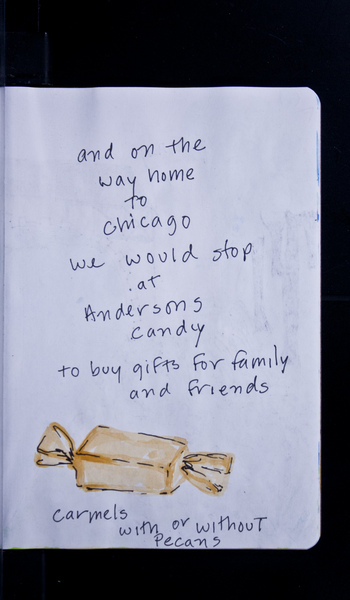 and on the
way home
to
chicago
we would stop
at
Andersons
candy
to buy gifts for family
and friends
carmels
with or without
Pecans